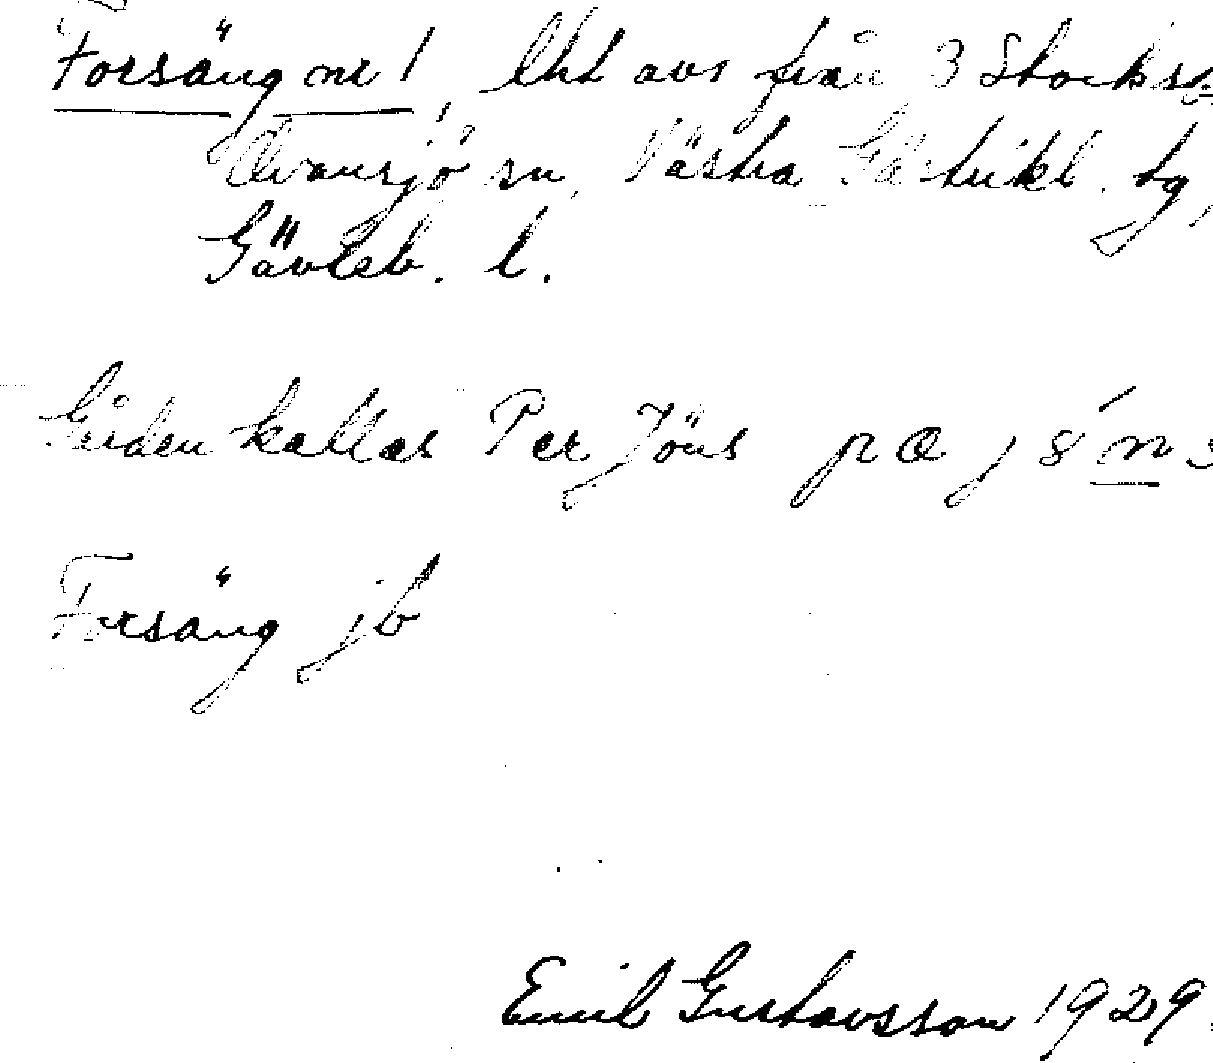 Forsäng nr 1, lht avs från 3 Stocks
Ovansjö sn, Västra Gästrikl. tg,
Gävleb. l.
Gården kallas Per Jöns
Forsäng jb
Emil Gustavsson 1929.